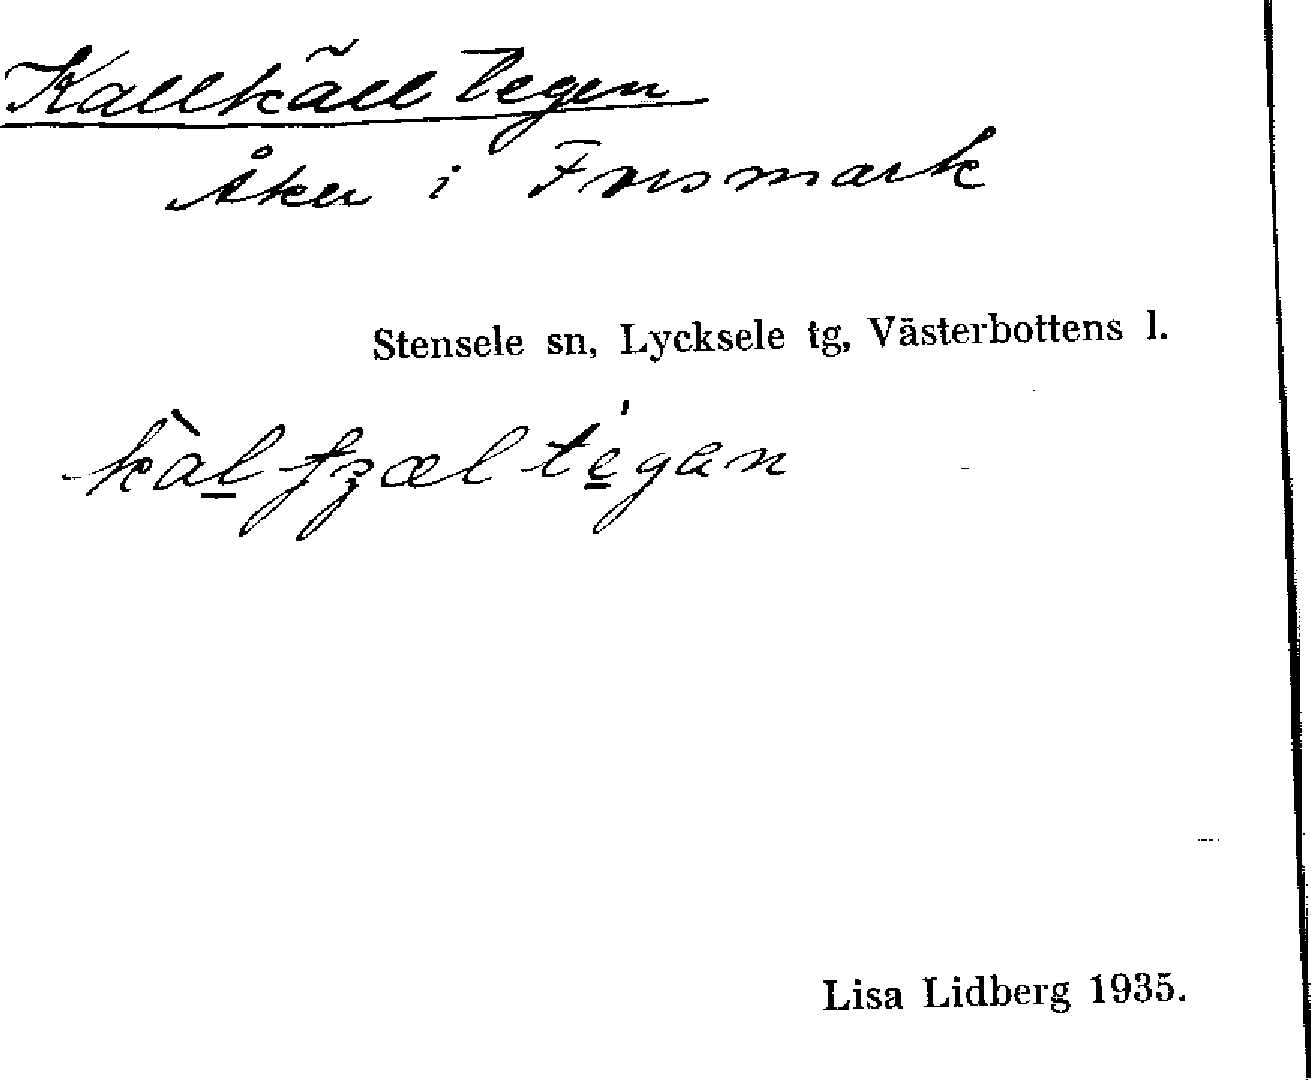 Kallkälltegen
Åker i Frismark
Stensele sn, Lycksele tg, Västerbottens l.
Lisa Lidberg 1935.